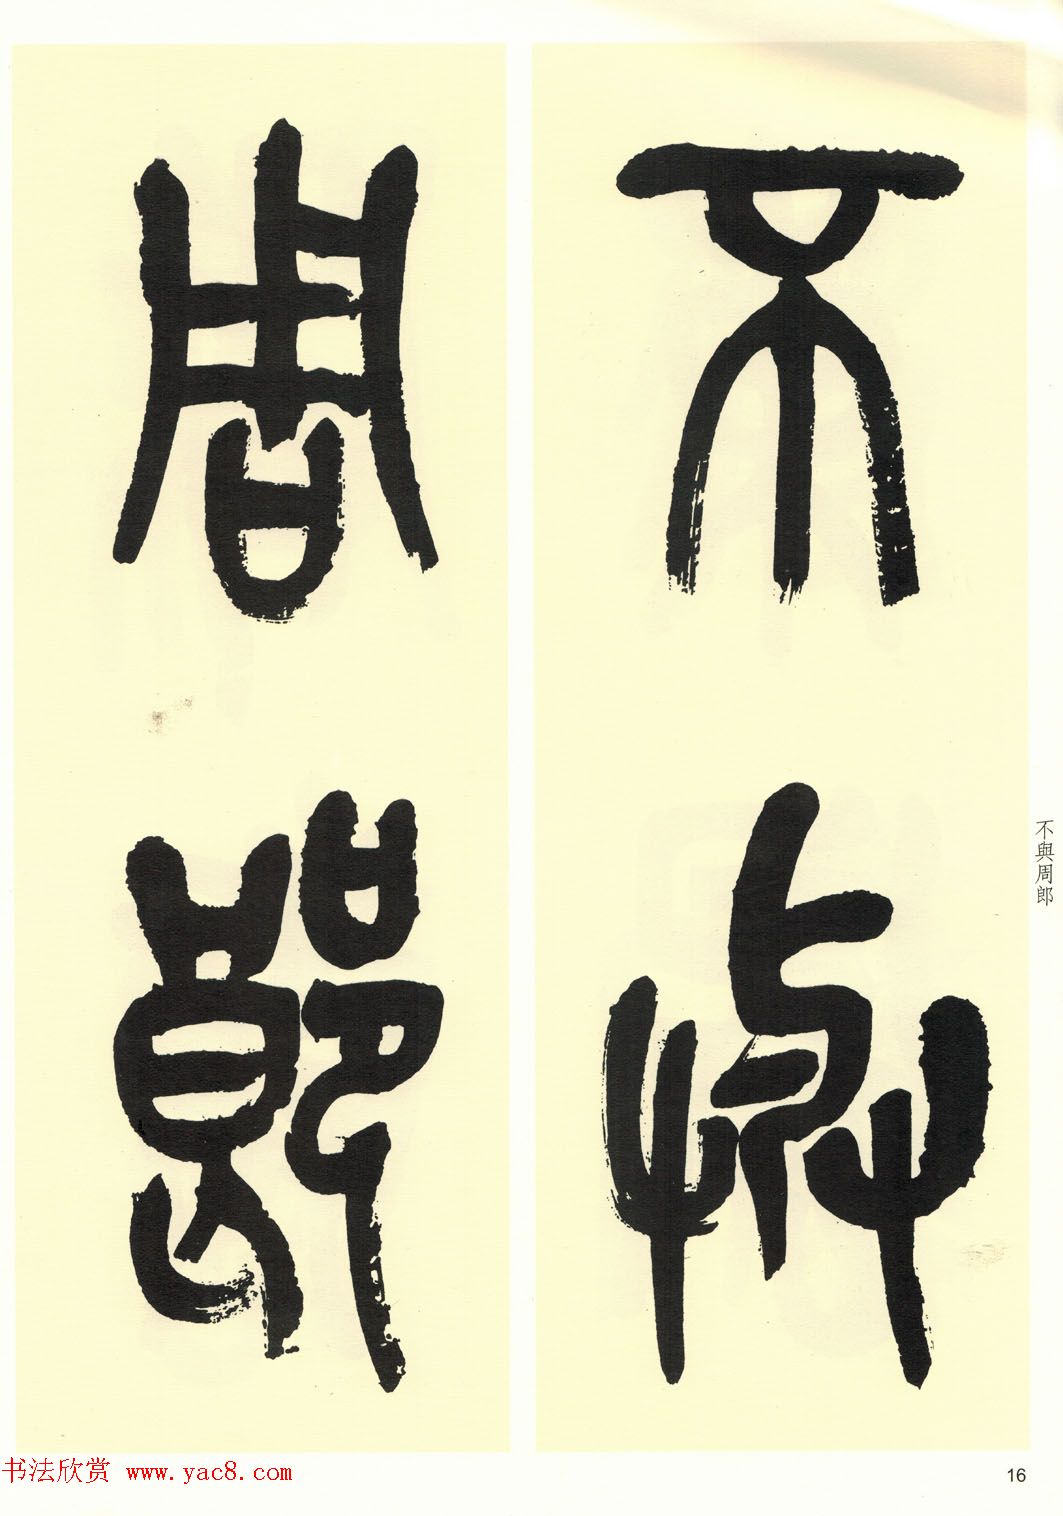 不與
周郎
不與周郎
书法欣赏 www.yac8.com
16